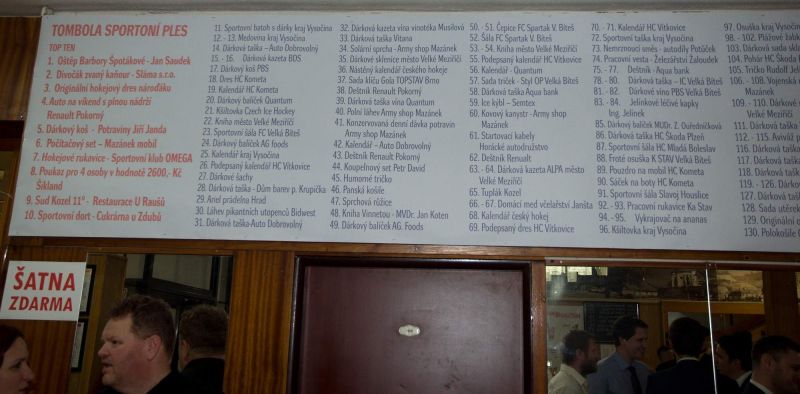 TOMBOLA SPORTONÍ PLES
TOP TEN
1. Oštěp Barbory Špotákové - Jan Saudek
2. Divočák zvaný kaňour - Sláma s.r.o.
3. Originální hokejový dres nároďáku
4. Auto na víkend s plnou nádrží
Renault Pokorný
5. Dárkový koš - Potraviny Jiří Janda
6. Počítačový set – Mazánek mobil
7. Hokejové rukavice - Sportovní klub OMEGA
8. Poukaz pro 4 osoby v hodnotě 2600,- Kč
Šikland
9. Sud Kozel 11° - Restaurace U Raušů
10. Sportovní dort - Cukrárna u Zdubů
11. Sportovní batoh s dárky kraj Vysočina
12. - 13. Medovina kraj Vysočina
14. Dárková taška – Auto Dobrovolný
15. - 16. Dárková kazeta BDS
17. Dárkový koš PBS
18. Dres HC Kometa
19. Kalendář HC Kometa
20. Dárkový balíček Quantum
21. Kšiltovka Czech Ice Hockey
22. Kniha město Velké Meziříčí
23. Sportovní šála FC Velká Bíteš
24. Dárkový balíček AG foods
25. Kalendář kraj Vysočina
26. Podepsaný kalendář HC Vítkovice
27. Dárkové šachy
28. Dárková taška - Dům barev p. Krupička
29. Anel prádelna Hrad
30. Láhev pikantních utopenců Bidwest
31. Dárková taška-Auto Dobrovolný
32. Dárková kazeta vína vinotéka Musilová
33. Dárková taška Vitana
34. Solární sprcha - Army shop Mazánek
35. Dárkové sklenice město Velké Meziříčí
36. Nástěný kalendář českého hokeje
37. Sada klíču Gola TOPSTAV Brno
38. Deštník Renault Pokorný
39. Dárková taška vína Quantum
40. Polní láhev Army shop Mazánek
41. Konzervovaná denní dávka potravin
Army shop Mazánek
42. Kalendář – Auto Dobrovolný
43. Deštník Renault Pokorný
44. Koupelnový set Petr David
45. Humorné tričko
46. Panská košile
47. Sprchová růžice
48. Kniha Vinnetou - MVDr. Jan Koten
49. Dárkový balíček AG. Foods
50. - 51. Čepice FC Spartak V. Bíteš
52. Šála FC Spartak V. Bíteš
53. - 54. Kniha město Velké Meziříčí
55. Podepsaný kalendář HC Vítkovice
56. Kalendář - Quantum
57. Sada triček - Styl OP Velká Bíteš
58. Dárková taška Aqua bank
59. Ice kýbl – Semtex
60. Kovový kanystr - Army shop
Mazánek
61. Startovací kabely
Horácké autodružstvo
62. Deštník Renualt
63. - 64. Dárková kazeta ALPA město
Velké Meziříčí
65. Tuplák Kozel
66. - 67. Domácí med včelařství Janšta
68. Kalendář český hokej
69. Podepsaný dres HC Vítkovice
70. - 71. Kalendář HC Vítkovice
72. Sportovní taška kraj Vysočina
73. Nemrznoucí směs - autodíly Potůček
74. Pracovní vesta - Železářství Žaloudek
75. - 77. Deštník – Aqua bank
78. - 80. Dárková taška – IC Velká Bíteš
81. - 82. Dárkové víno PBS Velká Bíteš
83. - 84. Jelínkové léčivé kapky
Ing. Jelínek
85. Dárkový balíček MUDr. Z. Ouředničková
86. Dárková taška HC Škoda Plzeň
87. Sportovní šála HC Mladá Boleslav
88. Froté osuška K STAV Velká Bíteš
89. Pouzdro na mobil HC Kometa
90. Sáček na boty HC Kometa
91. Sportovní šála Slavoj Houslice
92. - 93. Pracovní rukavice Ka Stav
94. - 95. Vykrajovač na ananas
96. Kšiltovka kraj Vysočina
97. Osuška kraj Vy
98. - 102. Plážové žabk
103. Dárková sada skla
104. Pohár HC Škoda P
105. Tričko Rudolf Jel
106. - 108. Vojenská
Mazánek
109. - 110. Dárkové
Velké Me
111. Dárková taška
112. - 115. Aviváž
116. Dárková taška
117. Dárková taška
118. Dárková taška
119. - 126. Dárková
127. Dárková taška
128. Sada utěrek
129. Originální
130. Polokošile
ŠATNA
ZDARMA